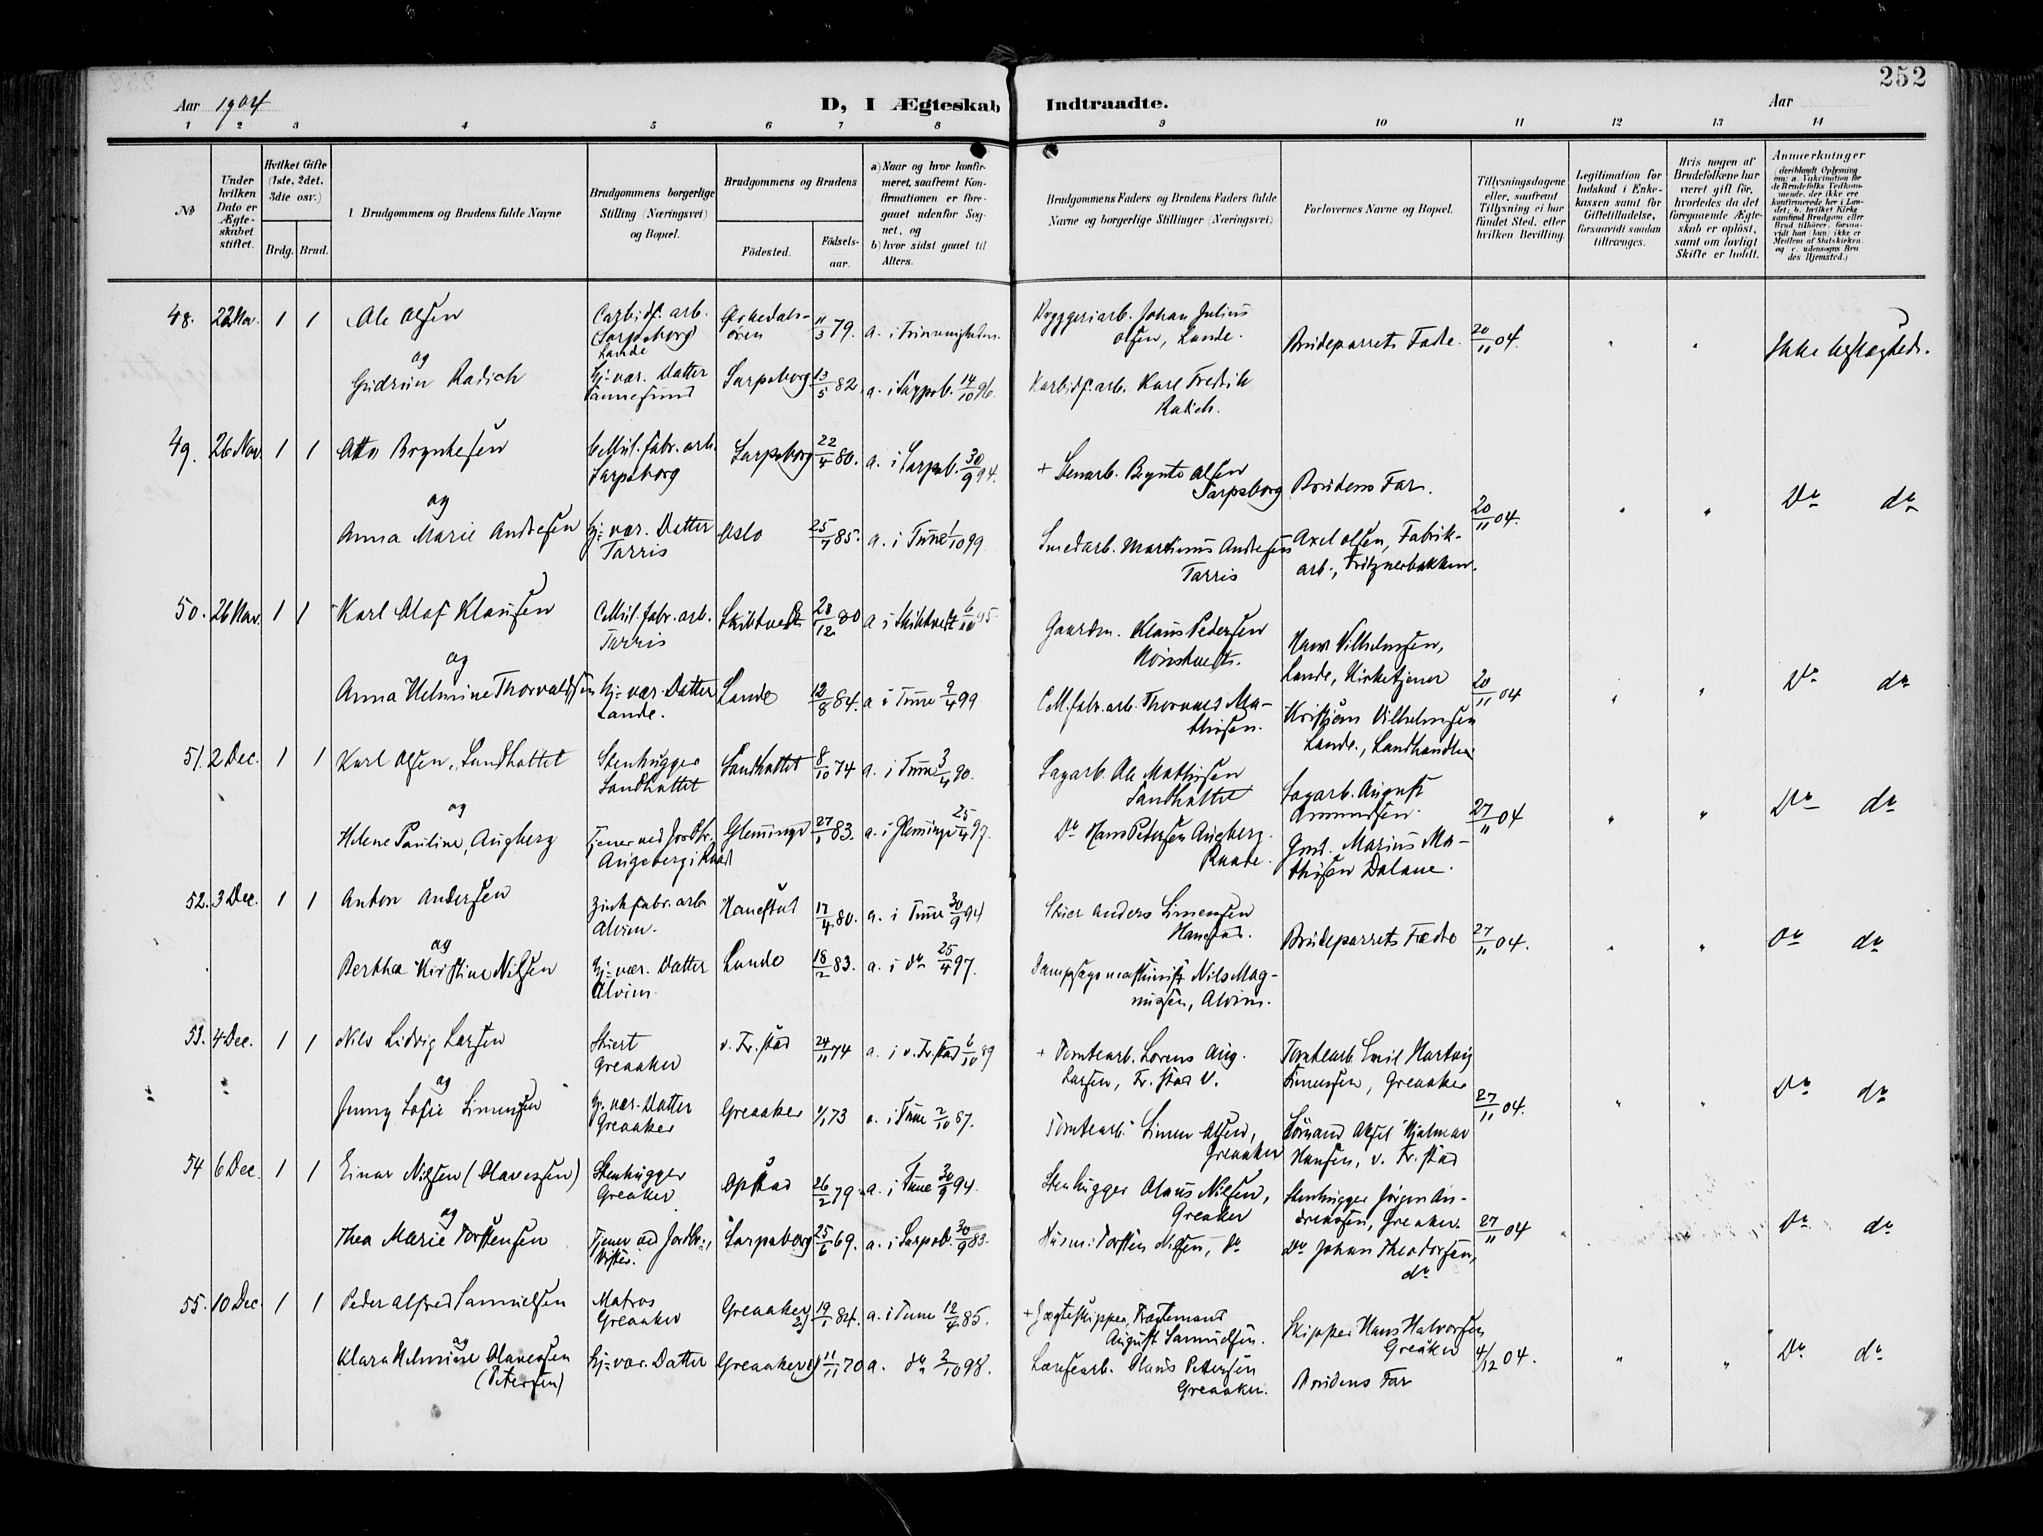 252
Aar 1904
D, I Ægteskab Indtraadte.
Aar
1 2 3 4 5 6 7 8 9 10 11 12 13 14
No
Under hvilken Dato er Ægteskabet stiftet.
Hvilket Gifte (1ste, 2det, 3die osv.)
Brdg. Brud.
Brudgommens og Brudens fulde Navne
Brudgommens borgerlige Stilling (Næringsvei) og Bopæl.
Brudgommens og Brudens
Födested.
Födselsaar.
a) Naar og hvor konfirmeret, saafremt Konfirmationen er foregaaet udenfor Sognet, og
b) hvor sidst gaaet til Alters.
Brudgommens Faders og Brudens Faders fulde Navne og borgerlige Stillinger (Næringsvei)
Forlovernes Navne og Bopæl.
Tillysningsdagene eller, saafremt Tillysning ei har fundet Sted, efter hvilken Bevilling.
Legitimation for Indskud i Enkekassen samt for Giftetilladelse, forsaavidt saadan tiltrænges.
Hvis nogen af Brudefolkene har været gift för, hvorledes da det foregaaende Ægteskab er oplöst, samt om lovligt Skifte er holdt.
Anmerkninger
48. 22 Nov. 1 1 Ole Olsen Carbidf. arb. 11/3 79. Bryggeriarb. Johan Julius
Sarpsborg Olsen, Lande. Brudeparrets Fædre. 20/11 04. " " Ikke beslægtede.
og Lande
Gudrun Radich Hj=vær. Datter Sarpsborg 13/5 82. a. i Sarpsb. 14/10 96. Karbidf. arb. Karl Fredrik
Sannesund Radich.
49. 26 Nov. 1 1 Otto Bryntesen Cellul. fabr. arb. Sarpsborg 22/4 80. a. i Sarpsb. 30/9 94. + Stenarb. Brynte Olsen
Sarpsborg Sarpsborg Brudens Far.
og 20/11 04. " " Do do
Anna Marie Andresen Hj=vær. Datter Oslo 25/7 85. a. i Tune 1/10 99. Smedarb. Martinus Andresen Axel Olsen, Fabrik-
Tarris Tarris arb., Fritznerbakken.
50. 26 Nov. 1 1 Karl Olaf Klausen Cellul. fabr. arb. Skibtvedt 28/12 80 a i Skibtvedt 6/10 95. Gaardm. Klaus Pedersen
Tarris Hans Vilhelmsen,
og Lande, Kirketjener
Anna Helmine Thorvaldsen Hj=vær. Datter Lande 12/8 84. a i Tune 9/4 99. C.M. fabr. arb. Thorvald Ma- 20/11 04 " " Do do
Lande. thisen. Kristian Vilhelmsen
Lande., Landhandler
51. 2 Dec. 1 1 Karl Olsen, Sandhattet Stenhugger Sandhattet 8/10 74 a. i Tune 3/4 90. Sagarb. Ole Mathisen
Sandhattet Sandhattet Sagarb. August
og Amundsen. 27/11 04 " " Do do
Helene Pauline, Augberg Tjener ved Jordbr. Glemminge 27/1 83. a. i Glemminge 25/4 97. Do Hans Petersen Augberg Gmd. Marius Ma-
Augeberg i Raad Raade. thisen Dalane.
52. 3 Dec. 1 1 Anton Andersen Zinkfabr. arb Hanestad 17/4 80. a. i Tune 30/9 94 Skier Anders Simensen
Alvim. Hanestad. Brudeparrets Fædre 27/11 04. " " Do do
og
Bertha Kirstine Nilsen Hj=vær. Datter Lande 18/2 83. a. i do 25/4 97. Dampsagsmaskinist Nils Mag-
Alvim. nusen, Alvim.
53. 4 Dec. 1 1 Nils Ludvig Larsen Skiert v. Fr.stad 24/11 74 a. i v. Fr.stad 6/10 89 + Tomtearb. Lorens Aug. Tomtearb. Emil Hartvig
Greaaker Larsen, Fr.stad V. Simensen, Greaaker
og 27/11 04. " " Do do
Jenny Sofie Simensen Hj. vær. Datter Greaaker 1/1 73 a. i Tune 2/10 87. Tomtearb. Simen Olsen, Sömand Aksel Hjalmar
Greaaker Greaaker Hansen, v. Fr.stad
54 6 Dec. 1 1 Einar Nilsen (Olavessen) Stenhugger Opstad 26/2 79. a. i Tune 30/9 94. Stenhugger Olaus Nilsen, Stenhugger Jörgen An-
Greaaker Greaker dreassen, Greaker.
og 27/11 04 Do do
Thea Marie Torstensen Tjener ved Jordbr., Sarpsborg 25/6 69. a. i Sarpsb. 30/9 83. Husm. Torsten Nilsen, do Do Johan Theodorsen,
do
55. 10 Dec. 1 1 Peder Alfred Samuelsen Matros Greaaker 19/1 84. a. i Tune 12/4 85. + Jægteskipper, Fragtemand
Greaaker August Samuelsen. Skipper Hans Halvorsen
og Greaker 4/12 04. " " Do do
Klara Helmine Olavessen Hj=vær. Datter Greaaker 11/11 70 a. do 2/10 98. Lænsearb. Olaus Petersen Brudens Far
(Petersen) Greaaker.